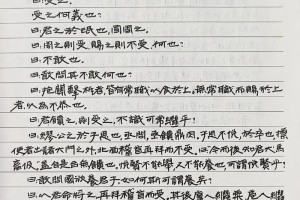 曰：受之。
受之何義也？
曰：君之於氓也，固周之。
曰：周之則受，賜之則不受，何也？
曰：不敢也。
曰：敢問其不敢何也？
曰：抱關擊柝者，皆有常職以食於上，無常職而賜於上
者，以為不恭也。
曰：君餽之，則受之，不識可常繼乎？
曰：繆公之於子思也，亟問，亟餽鼎肉，子思不悅，於卒也，摽
使者出諸大門之外，北面稽首再拜而不受，曰：今而後知君之犬馬
畜伋，蓋自是臺無餽也，悅賢不能舉，又不能養也，可謂悅賢乎？
曰：敢問國君欲養君子，如何斯可謂養矣？
曰：以君命將之，再拜稽首而受，其後廩人繼粟，庖人繼